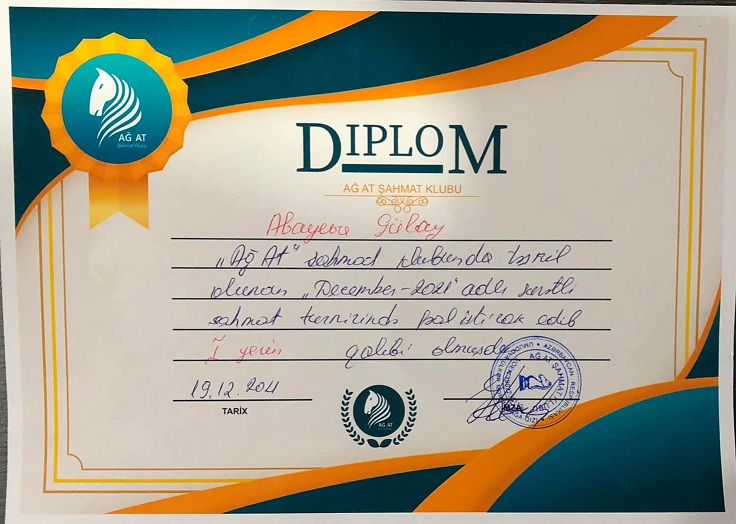 AĞ AT
Şahmat Klubu
DIPLOM
AĞ AT ŞAHMAT KLUBU
Abayeva Gülay
„Ağ At" şahmat klubunda təşkil
olunan „December-2021" adlı sürətli
şahmat turnirində iştirak edib
I yerin qalibi olmuşdu
19.12.2021
TARİX
AĞ AT
AZƏRBAYCAN RESPUBLİKASI
AĞ AT ŞAHMAT KLUBU